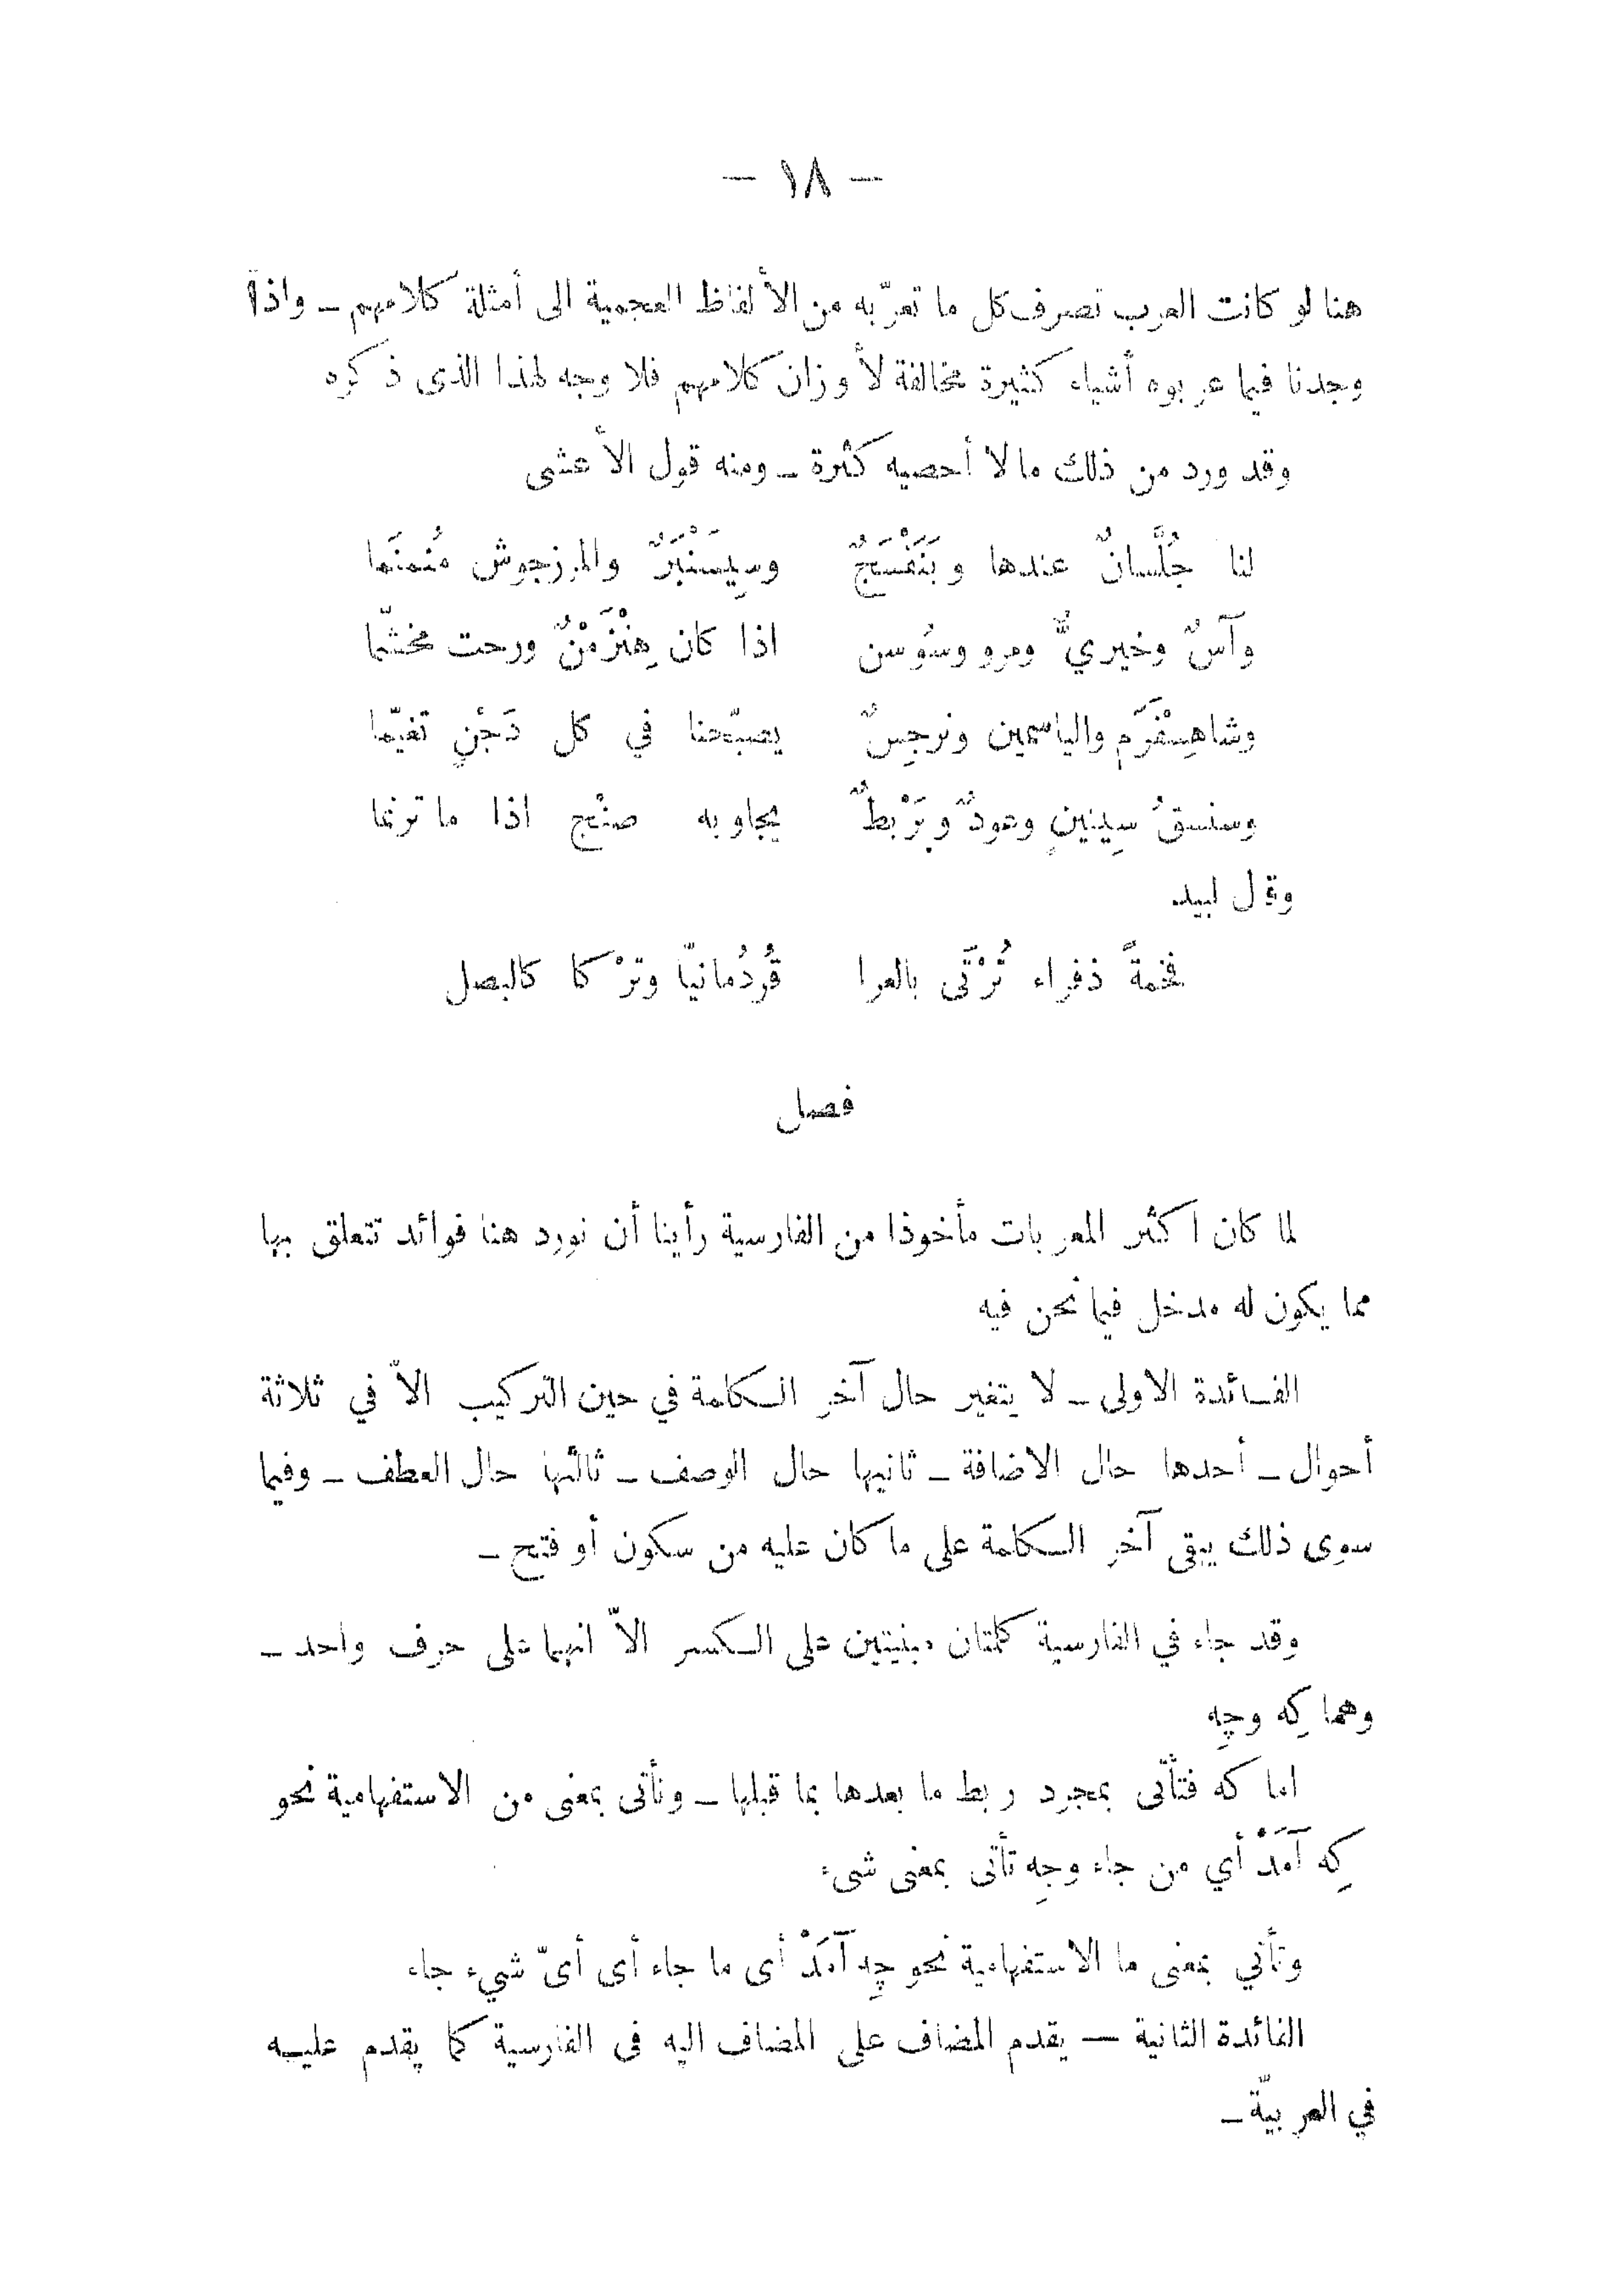 — ١٨ —
هنا لو كانت العرب تصرف كل ما تعرّبه من الألفاظ العجمية الى أمثلة كلامهم ـ واذا
وجدنا فيما عربوه أشياء كثيرة مخالفة لأوزان كلامهم فلا وجه لهذا الذى ذكره
وقد ورد من ذلك مالا أحصيه كثرة ـ ومنه قول الأعشى
لنا جُلَّسانٌ عندها وبَنَفْسَجٌ وسِيسَنْبَرٌ والمرزجوش مُنمنَما
وآسٌ وخيريٌّ ومرو وسَوْسن اذا كان هِنْزَمْنٌ ورحت مخشّما
وشاهِسْفَرَم والياسمين ونرجِسٌ يصبّحنا في كل دَجْنٍ تغيّما
ومستقُ سِينينٍ وعودٌ وبَرْبطٌ يجاوبه صنْج اذا ما ترنما
وقال لبيد
فخمةً ذفراء تُرْتَى بالعرا قُردُمانيّا وتَرْكا كالبصل
فصل
لما كان اكثر المعربات مأخوذا من الفارسية رأينا أن نورد هنا فوائد تتعلق بها
مما يكون له مدخل فيما نحن فيه
الفائدة الاولى ـ لا يتغير حال آخر الكلمة في حين التركيب الاّ في ثلاثة
أحوال ـ أحدها حال الاضافة ـ ثانيها حال الوصف ـ ثالثها حال العطف ـ وفيما
سوى ذلك يبقى آخر الكلمة على ما كان عليه من سكون أو فتح ـ
وقد جاء في الفارسية كلمتان مبنيتين على الكسر الاّ انهما على حرف واحد ـ
وهما كِه وچِه
اما كه فتأتى بمجرد ربط ما بعدها بما قبلها ـ وتأتى بمعنى من الاستفهامية نحو
كِه آمَدْ أي من جاء وچِه تأتى بمعنى شىء
وتأتي بمعنى ما الاستفهامية نحو چِه آمَدْ أى ما جاء أى أىّ شيء جاء
الفائدة الثانية — يقدم المضاف على المضاف اليه فى الفارسية كما يقدم عليه
في العربيّة ـ